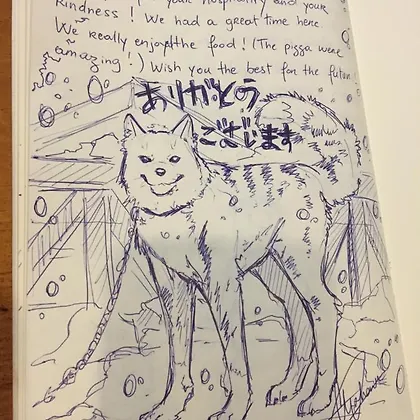 your hospitality and your
kindness ! We had a great time here
We really enjoy the food ! (The pizza were
amazing !) Wish you the best for the future !
ありがとう
ございます